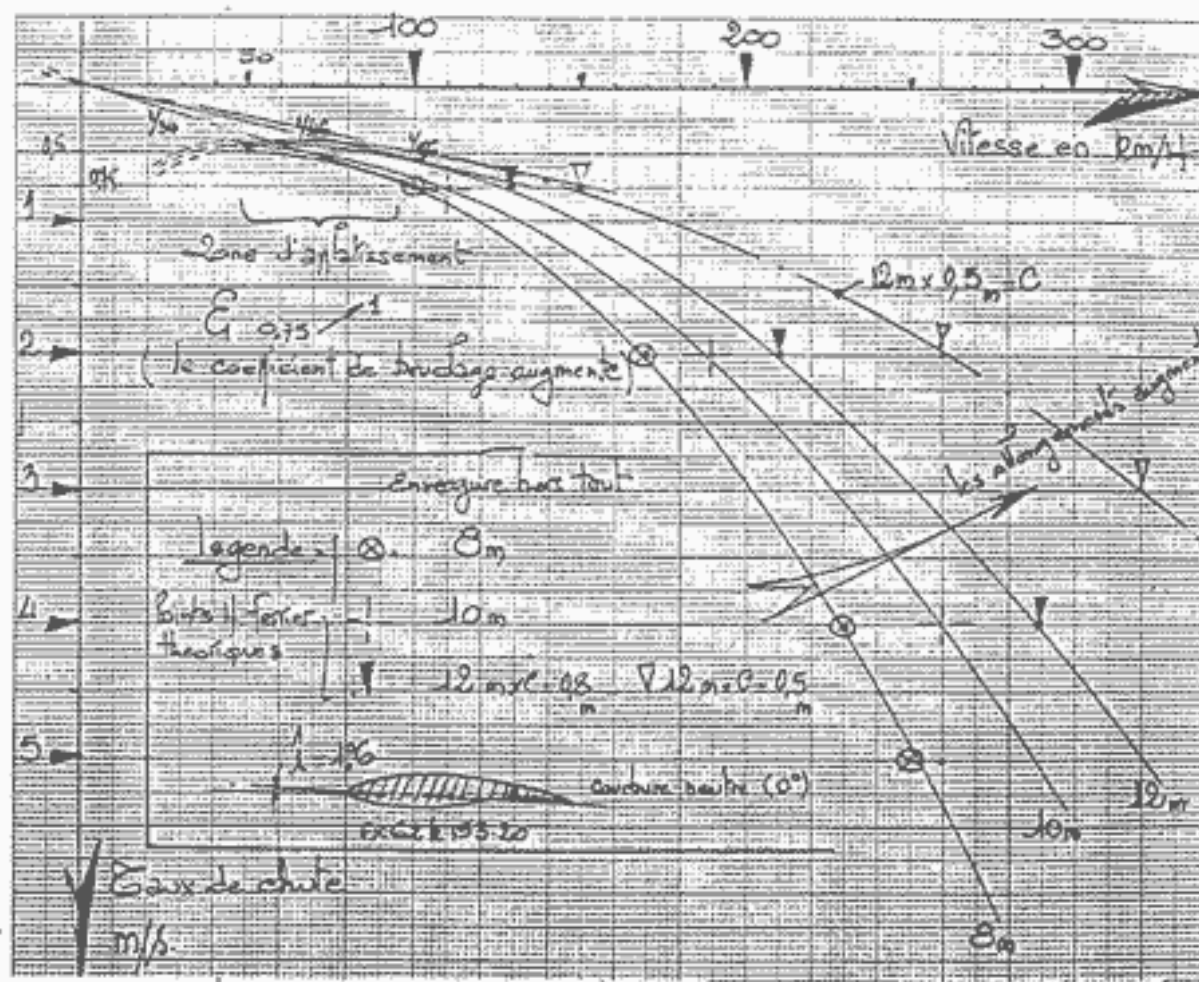 100
200
300
50
Vitesse en km/H
0,5
1
Zone d'aplatissement
12m x 0,5m = C
E 0,75 1
2
(le coeficient de braquage augmente)
les allongements augmen
3
Envergure hors tout
Legende
8m
4
Points
10m
theoriques
12 m x C = 0,8m
12 m x C = 0,5m
5
courbure neutre (0°)
12m
10m
Taux de chute
m/s
8m